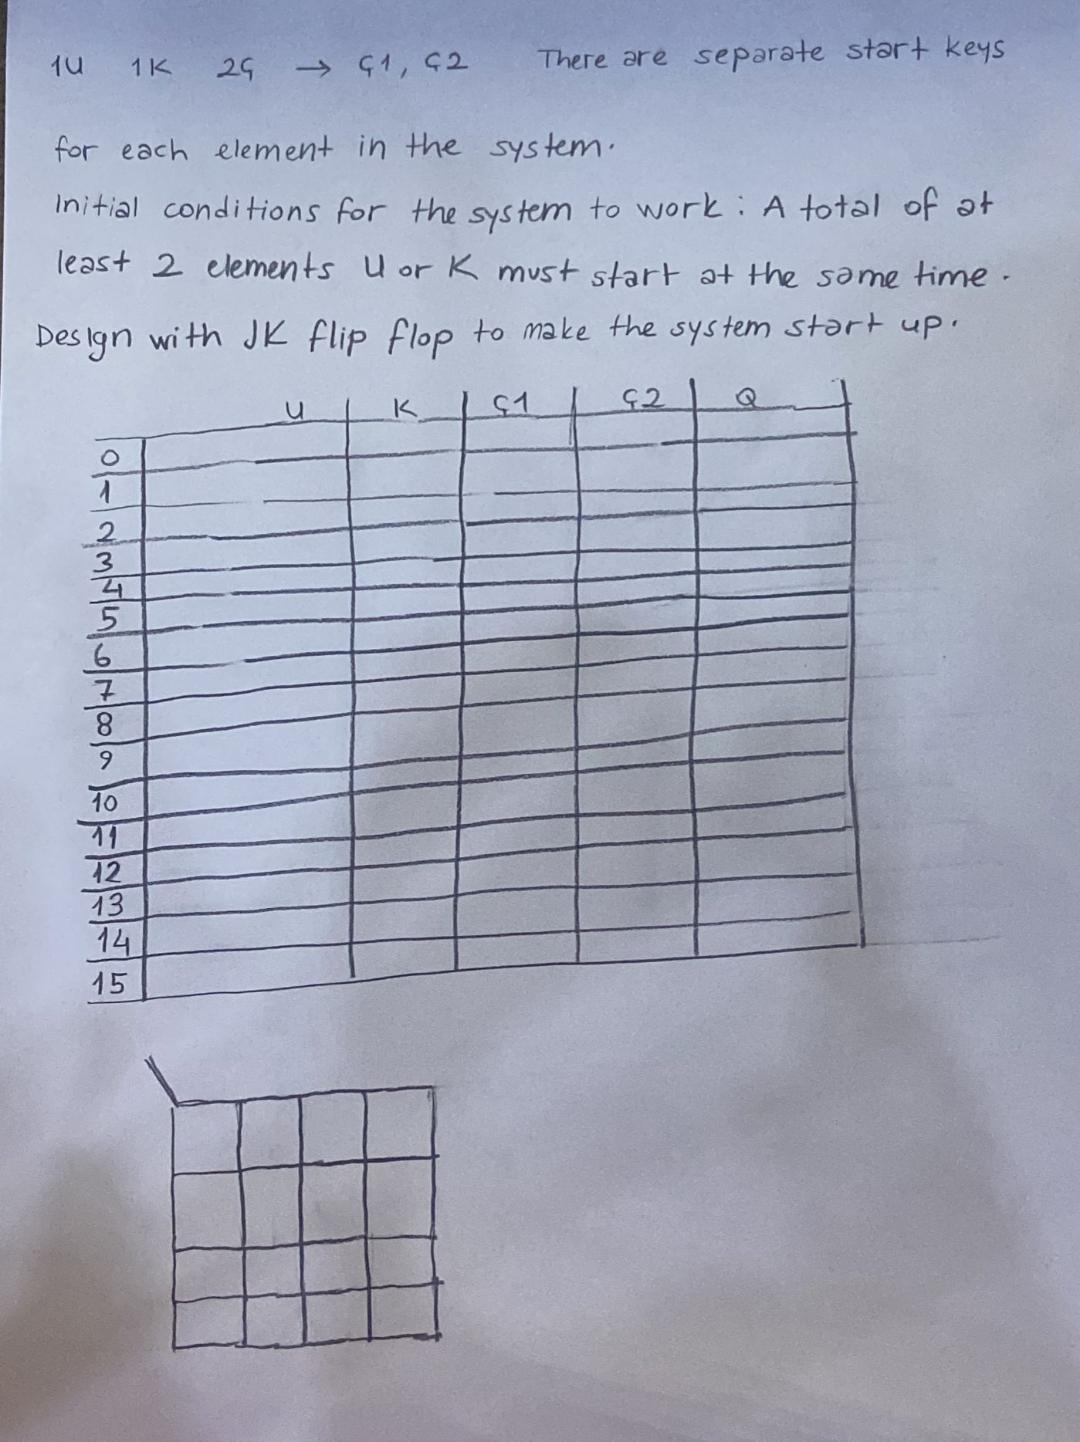 1U 1K 2Ç → Ç1, Ç2 There are separate start keys
for each element in the system.
Initial conditions for the system to work : A total of at
least 2 elements U or K must start at the same time.
Design with JK flip flop to make the system start up.
U K Ç1 Ç2 Q
0
1
2
3
4
5
6
7
8
9
10
11
12
13
14
15